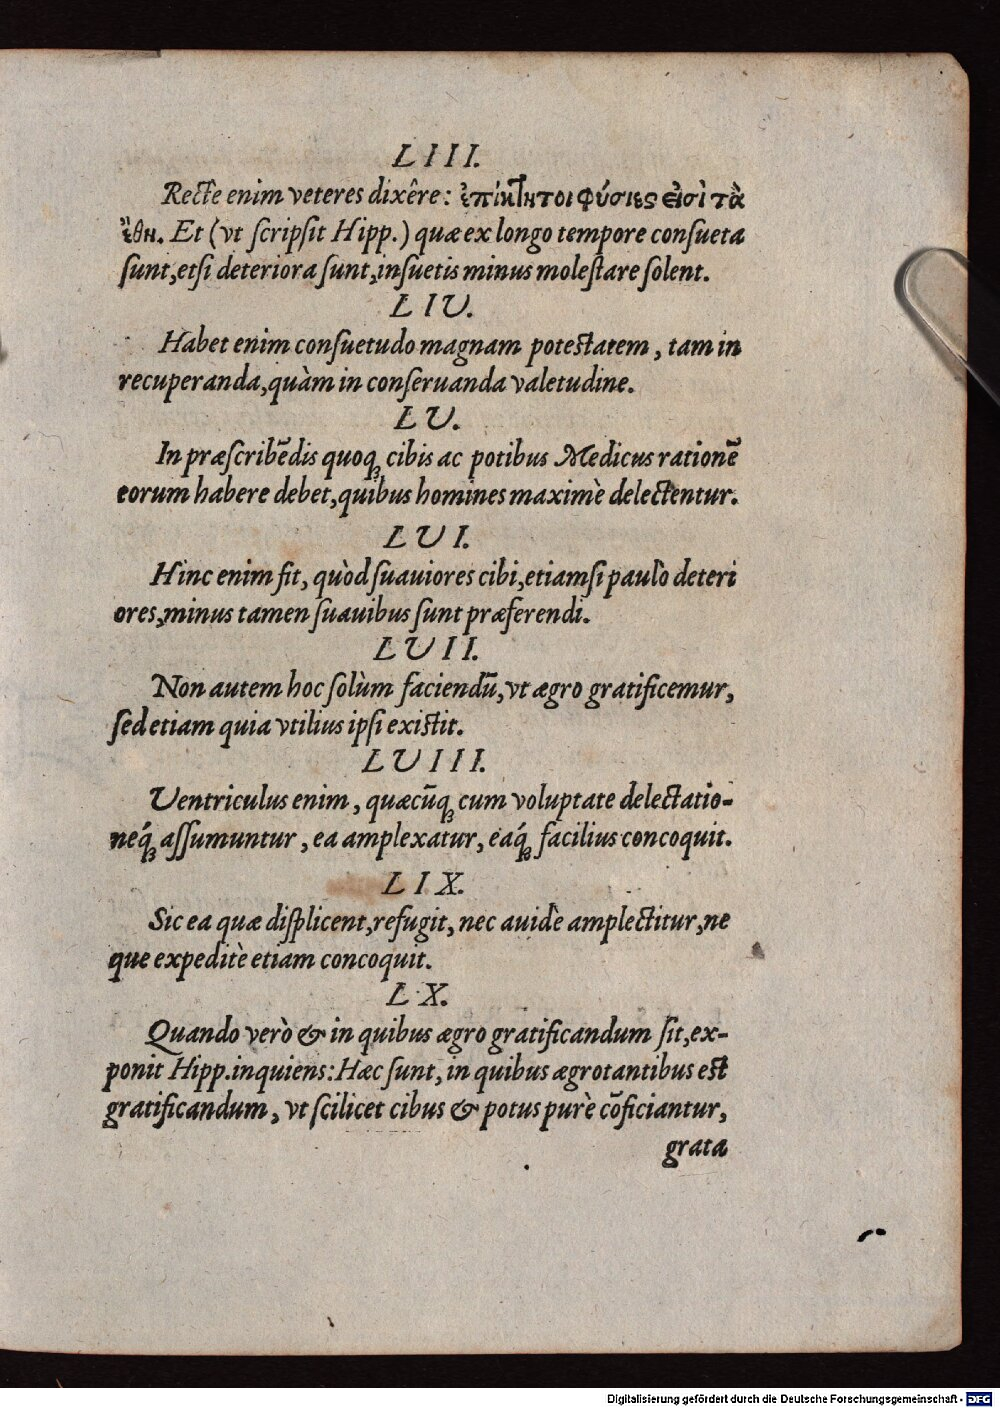 LIII.
Recte enim veteres dixêre: ἐπίκτητοι φύσιες εἰσὶ τὰ
ἤθη. Et (vt ſcripſit Hipp.) quæ ex longo tempore conſueta
ſunt, etſi deteriora ſunt, inſuetis minus moleſtare ſolent.
LIV.
Habet enim conſuetudo magnam potestatem, tam in
recuperanda, quàm in conſeruanda valetudine.
LV.
In præſcribẽdis quoqꝫ cibis ac potibus Medicus rationẽ
eorum habere debet, quibus homines maximè delectentur.
LVI.
Hinc enim fit, quòd ſuauiores cibi, etiamſi paulò deteri
ores, minus tamen ſuauibus ſunt præferendi.
LVII.
Non autem hoc ſolùm faciendũ, vt ægro gratificemur,
ſed etiam quia vtilius ipſi exiſtit.
LVIII.
Ventriculus enim, quæcũqꝫ cum voluptate delectatio-
neq́ꝫ aſſumuntur, ea amplexatur, eaq́ꝫ facilius concoquit.
LIX.
Sic ea quæ diſplicent, refugit, nec auidè amplectitur, ne
que expeditè etiam concoquit.
LX.
Quando verò & in quibus ægro gratificandum ſit, ex-
ponit Hipp. inquiens: Hæc ſunt, in quibus ægrotantibus eſt
gratificandum, vt ſcilicet cibus & potus purè cõficiantur,
grata
Digitalisierung gefördert durch die Deutsche Forschungsgemeinschaft - DFG